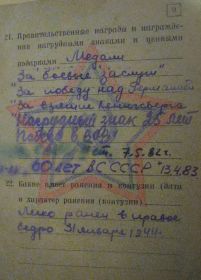 9
21. Правительственные награды и награжде-
ние нагрудными знаками и ценными
подарками Медали
"За боевые заслуги"
"За победу над Германией"
"За взятие Кенигсберга"
Нагрудный знак 25 лет
Победы в ВОВ
7.5.82г.
60 лет ВС СССР 13.4.83
22. Какие имеет ранения и контузии (дата
и характер ранения (контузии)
Легко ранен в правое
бедро 31 января 1944г.